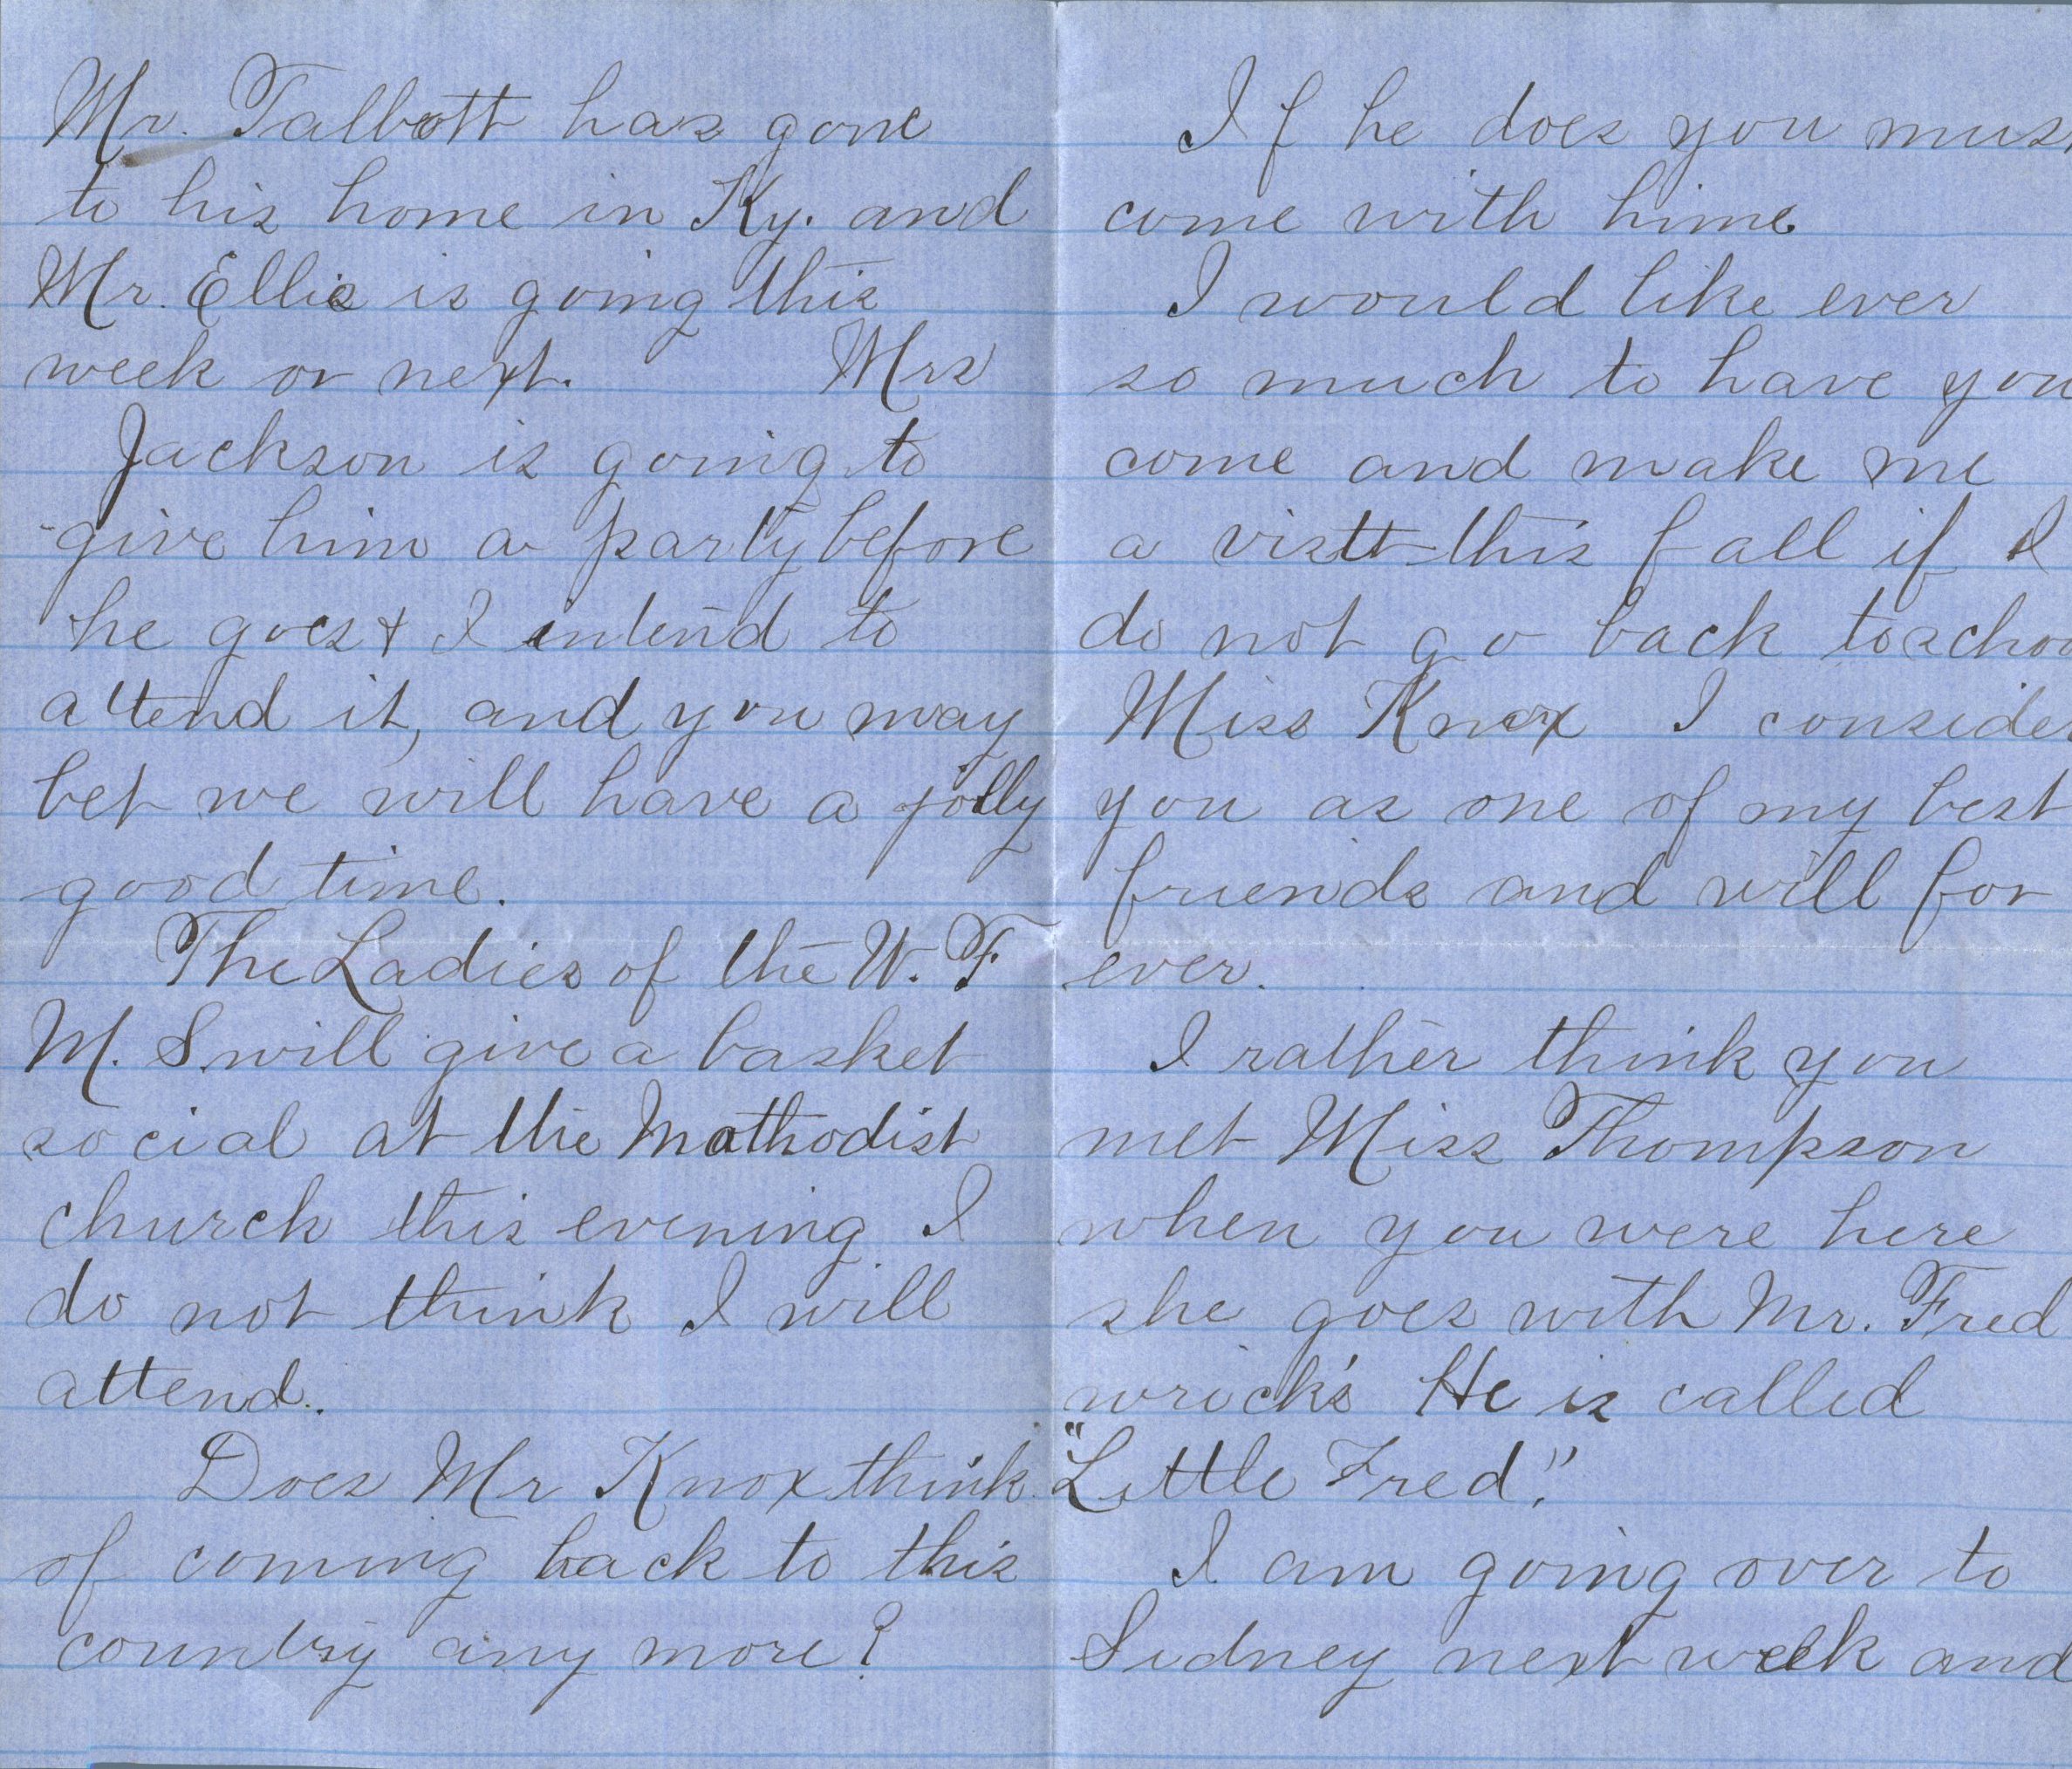 Mr. Talbott has gone
to his home in Ky. and
Mr. Ellis is going this
week or next. Mrs
Jackson is going to
give him a party before
he goes & I intend to
attend it, and you may
bet we will have a jolly
good time.
The Ladies of the W. F.
M. S will give a basket
social at the Mathodist
church this evening I
do not think I will
attend.
Does Mr Knox think
of coming back to this
country any more?
If he does you mus
come with hime
I would like ever
so much to have you
come and make me
a vistt this fall if I
do not go back to schoo
Miss Knox I consider
you as one of my best
friends and will for
ever.
I rather think you
met Miss Thompson
when you were here
she goes with Mr. Fred
wrick's He is called
"Little Fred".
I am going over to
Sidney next week and